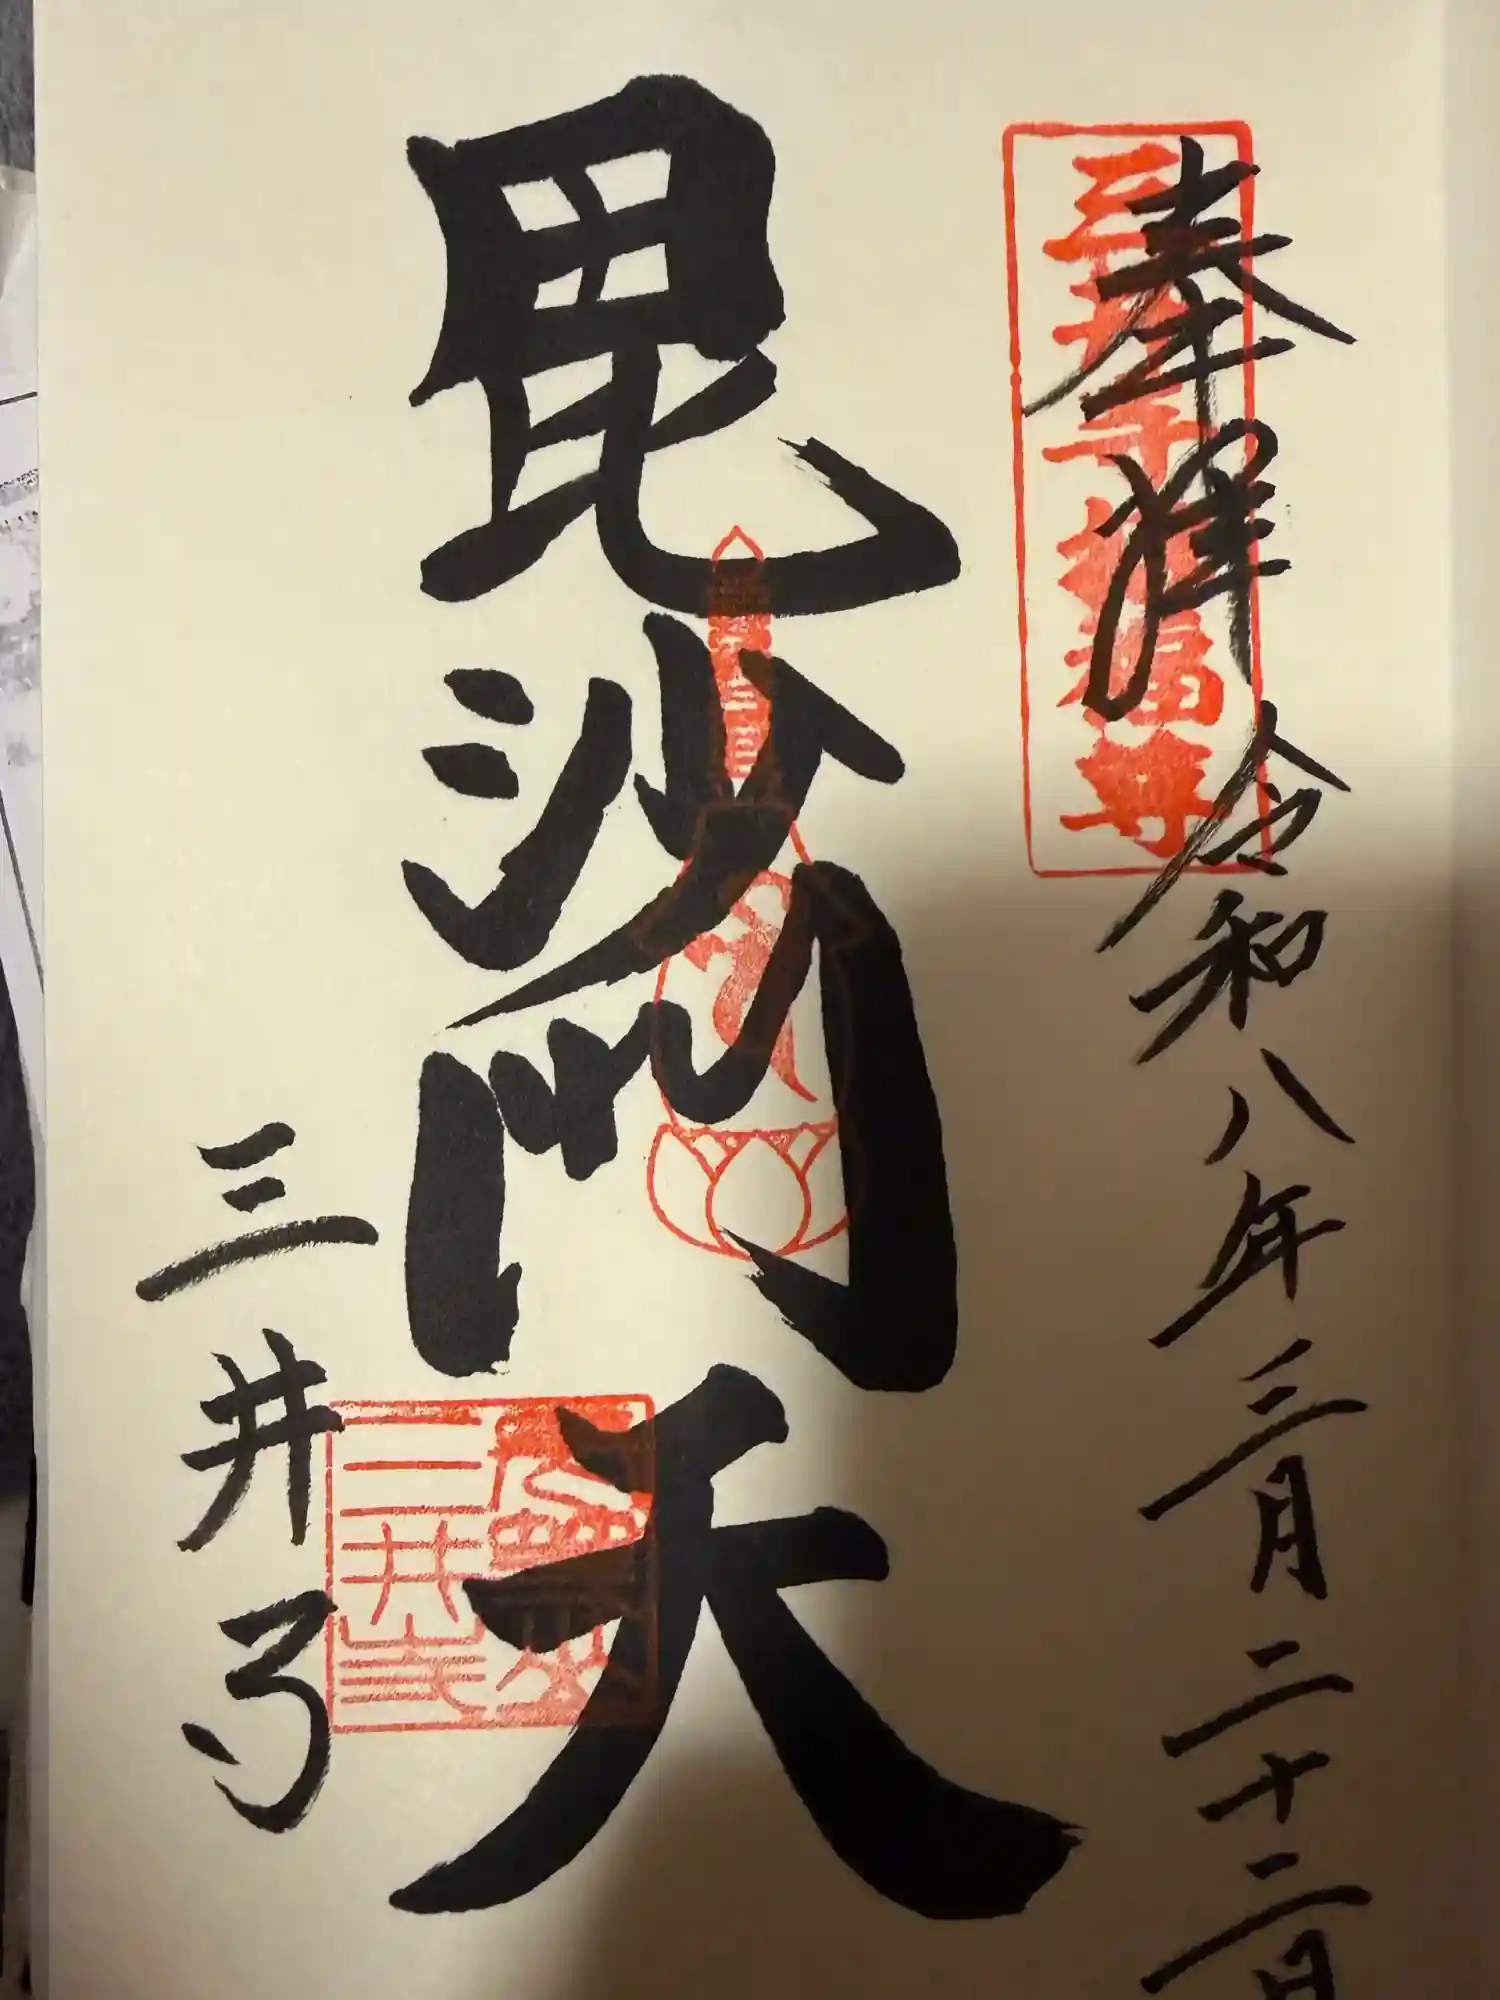 奉拝 令和八年三月二十二日
毘沙門天
三井寺
三井寺